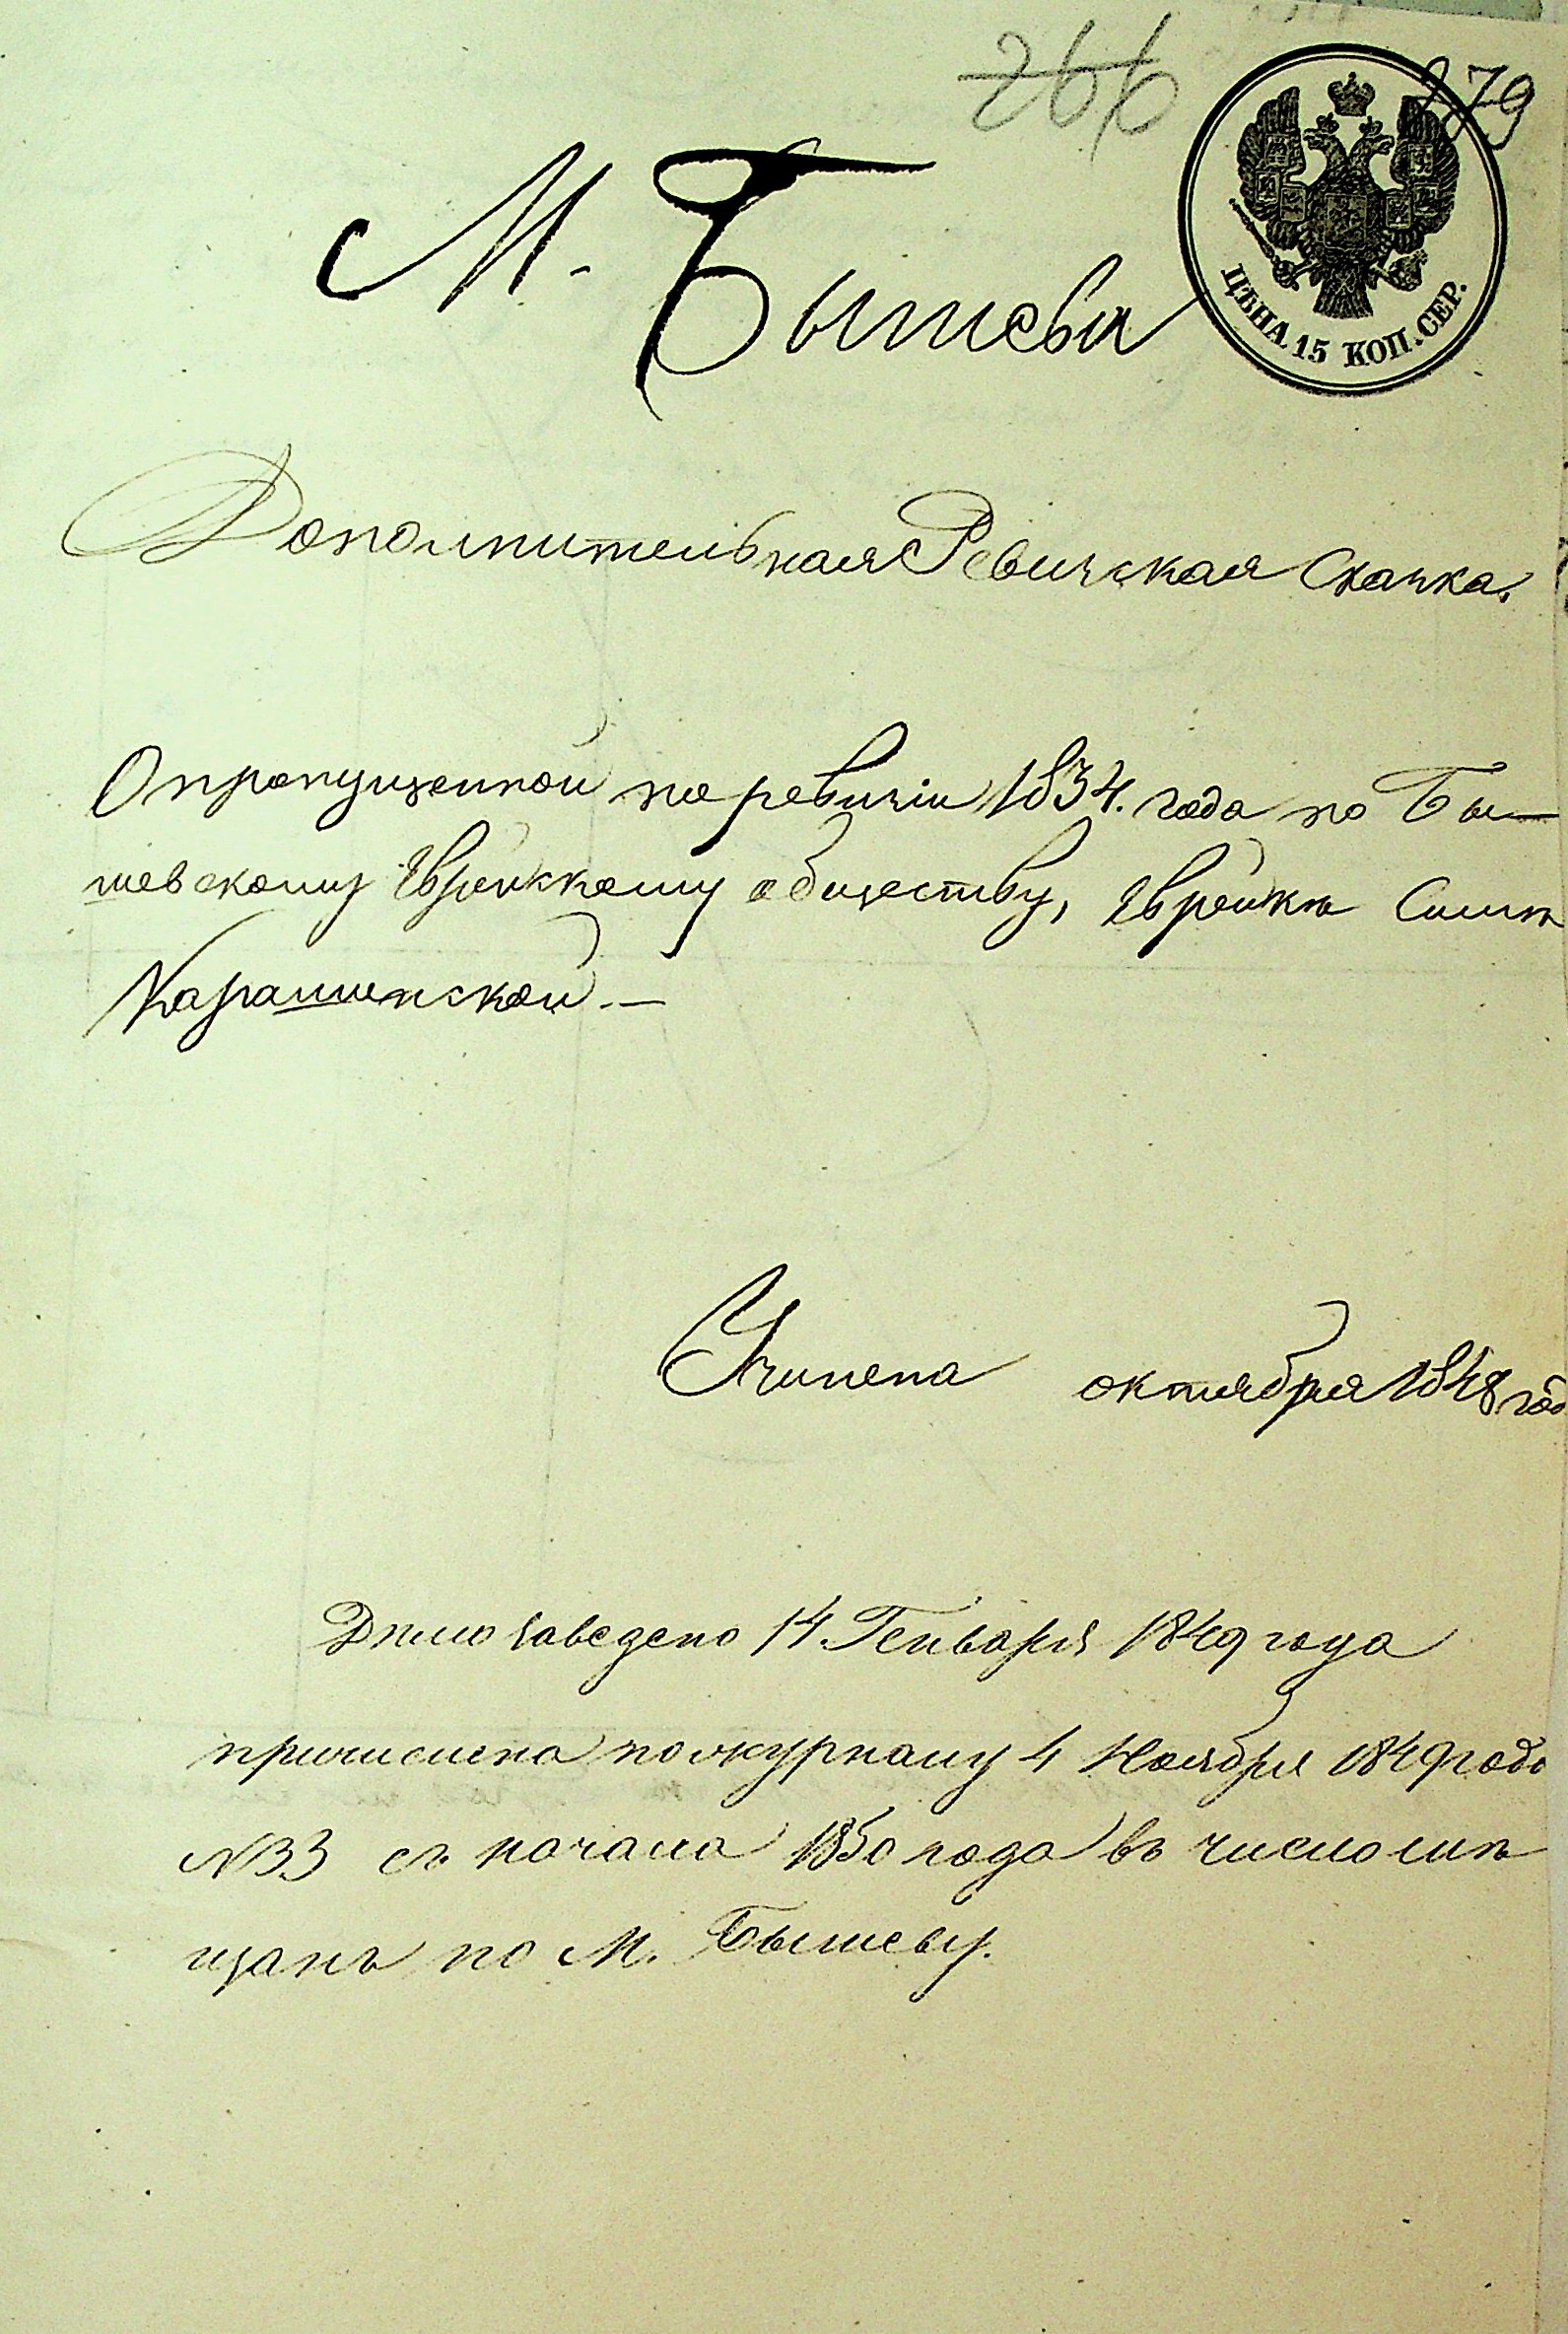 266
279
ЦѢНА. 15 КОП. СЕР.
М. Бышева
Дополнительная Ревизская Сказка.
О пропущенной по ревизіи 1834. года по Бы-
шевскому Еврейскому обществу, Еврейкѣ Симѣ
Карашинской. —
Учинена октября 1848 год
Дѣло заведено 14. Генваря 1849 года
причислена по журналу 4 Ноября 1849 года
N 33 съ начала 1850 года въ число мѣ
щанъ по м. Бышеву.